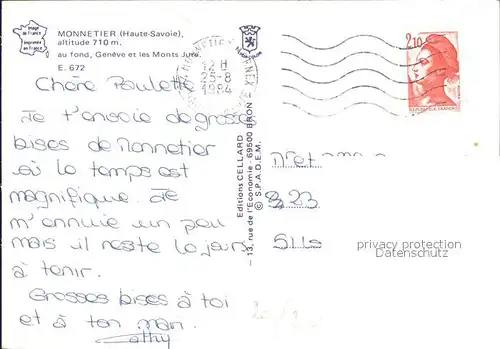 Image de France
Imprimée en France
MONNETIER (Haute-Savoie),
altitude 710 m.
au fond, Genève et les Monts Jura.
E. 672
12 H
25-8
1984
2,10
Chère Poulette
Je t'envoie de grosses
bises de Monnetier
où le temps est
magnifique. Je
m'ennuie un peu
mais il reste 10 jours
à tenir.
Grosses bises à toi
et à ton mari
Cathy
Editions CELLARD - 69500 BRON -
- 13, rue de l'Economie -
© S.P.A.D.E.M.
privacy protection
Datenschutz